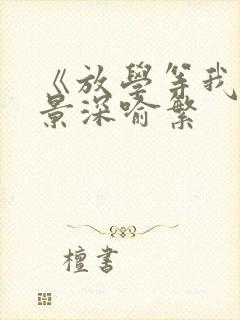 《放學等我
景深喻繁
檀書